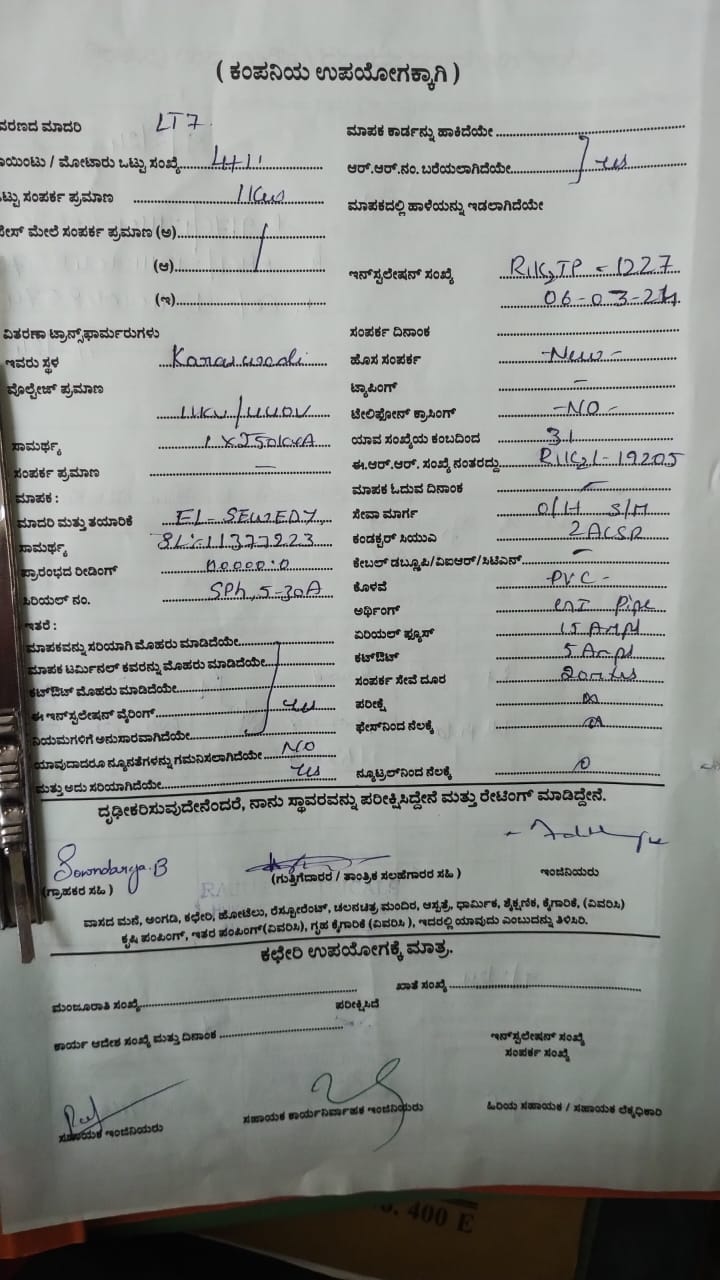 ( ಕಂಪನಿಯ ಉಪಯೋಗಕ್ಕಾಗಿ )
ವರಣದ ಮಾದರಿ LT7
ಾಯಿಂಟು / ಮೋಟಾರು ಒಟ್ಟು ಸಂಖ್ಯೆ
ಟ್ಟು ಸಂಪರ್ಕ ಪ್ರಮಾಣ 1Kw
ೇಸ್ ಮೇಲೆ ಸಂಪರ್ಕ ಪ್ರಮಾಣ (ಅ)
(ಆ)
(ಇ)
ವಿತರಣಾ ಟ್ರಾನ್ಸ್‌ಫಾರ್ಮರುಗಳು
ಇವರು ಸ್ಥಳ
ವೊಲ್ಟೇಜ್ ಪ್ರಮಾಣ
11KV/440V
ಸಾಮರ್ಥ್ಯ 1X250KVA
ಸಂಪರ್ಕ ಪ್ರಮಾಣ –
ಮಾಪಕ :
ಮಾದರಿ ಮತ್ತು ತಯಾರಿಕೆ EL-SEWEDY
ಸಾಮರ್ಥ್ಯ 11377223
ಪ್ರಾರಂಭದ ರೀಡಿಂಗ್ 00000.0
ಸಿರಿಯಲ್ ನಂ. SPh, 5-30A
ಇತರೆ :
ಮಾಪಕವನ್ನು ಸರಿಯಾಗಿ ಮೊಹರು ಮಾಡಿದೆಯೇ
ಮಾಪಕ ಟರ್ಮಿನಲ್ ಕವರನ್ನು ಮೊಹರು ಮಾಡಿದೆಯೇ
ಕಟ್‌ಔಟ್ ಮೊಹರು ಮಾಡಿದೆಯೇ
ಈ ಇನ್‌ಸ್ಟಲೇಷನ್ ವೈರಿಂಗ್ yes
ನಿಯಮಗಳಿಗೆ ಅನುಸಾರವಾಗಿದೆಯೇ
ಯಾವುದಾದರೂ ನ್ಯೂನತೆಗಳನ್ನು ಗಮನಿಸಲಾಗಿದೆಯೇ NO
ಮತ್ತು ಅದು ಸರಿಯಾಗಿದೆಯೇ yes
ಮಾಪಕ ಕಾರ್ಡನ್ನು ಹಾಕಿದೆಯೇ
ಆರ್.ಆರ್.ನಂ. ಬರೆಯಲಾಗಿದೆಯೇ yes
ಮಾಪಕದಲ್ಲಿ ಹಾಳೆಯನ್ನು ಇಡಲಾಗಿದೆಯೇ
ಇನ್‌ಸ್ಟಲೇಷನ್ ಸಂಖ್ಯೆ RJK2TP - 1227
06-03-24
ಸಂಪರ್ಕ ದಿನಾಂಕ
ಹೊಸ ಸಂಪರ್ಕ -New-
ಟ್ಯಾಪಿಂಗ್ –
ಟೆಲಿಫೋನ್ ಕ್ರಾಸಿಂಗ್ -NO-
ಯಾವ ಸಂಖ್ಯೆಯ ಕಂಬದಿಂದ 31
ಈ.ಆರ್.ಆರ್. ಸಂಖ್ಯೆ ನಂತರದ್ದು RJK2L-19205
ಮಾಪಕ ಓದುವ ದಿನಾಂಕ –
ಸೇವಾ ಮಾರ್ಗ O/H S/M
ಕಂಡಕ್ಟರ್ ಸಿಯುಎ 2ACSR
ಕೇಬಲ್ ಡಬ್ಲೂಪಿ/ವಿಐಆರ್/ಸಿಟಿಎಸ್ –
ಕೊಳವೆ -PVC-
ಅರ್ಥಿಂಗ್ Pipe
ಏರಿಯಲ್ ಫ್ಯೂಸ್ 15 Amps
ಕಟ್‌ಔಟ್ 5 Amps
ಸಂಪರ್ಕ ಸೇವೆ ದೂರ 20mtrs
ಪರೀಕ್ಷೆ
ಫೇಸ್‌ನಿಂದ ನೆಲಕ್ಕೆ
ನ್ಯೂಟ್ರಲ್‌ನಿಂದ ನೆಲಕ್ಕೆ 0
ದೃಢೀಕರಿಸುವುದೇನೆಂದರೆ, ನಾನು ಸ್ಥಾವರವನ್ನು ಪರೀಕ್ಷಿಸಿದ್ದೇನೆ ಮತ್ತು ರೇಟಿಂಗ್ ಮಾಡಿದ್ದೇನೆ.
(ಗ್ರಾಹಕರ ಸಹಿ )
(ಗುತ್ತಿಗೆದಾರರ / ತಾಂತ್ರಿಕ ಸಲಹೆಗಾರರ ಸಹಿ )
ಇಂಜಿನಿಯರು
ವಾಸದ ಮನೆ, ಅಂಗಡಿ, ಕಛೇರಿ, ಹೋಟೆಲು, ರೆಸ್ಟೋರೆಂಟ್, ಚಲನಚಿತ್ರ ಮಂದಿರ, ಆಸ್ಪತ್ರೆ, ಧಾರ್ಮಿಕ, ಶೈಕ್ಷಣಿಕ, ಕೈಗಾರಿಕೆ, (ವಿವರಿಸಿ)
ಕೃಷಿ ಪಂಪಿಂಗ್, ಇತರ ಪಂಪಿಂಗ್(ವಿವರಿಸಿ), ಗೃಹ ಕೈಗಾರಿಕೆ (ವಿವರಿಸಿ ), ಇದರಲ್ಲಿ ಯಾವುದು ಎಂಬುದನ್ನು ತಿಳಿಸಿರಿ.
ಕಛೇರಿ ಉಪಯೋಗಕ್ಕೆ ಮಾತ್ರ.
ಮಂಜೂರಾತಿ ಸಂಖ್ಯೆ
ಖಾತೆ ಸಂಖ್ಯೆ
ಪರೀಕ್ಷಿಸಿದೆ
ಕಾರ್ಯ ಆದೇಶ ಸಂಖ್ಯೆ ಮತ್ತು ದಿನಾಂಕ
ಇನ್‌ಸ್ಟಲೇಷನ್ ಸಂಖ್ಯೆ
ಸಂಪರ್ಕ ಸಂಖ್ಯೆ
ಸಹಾಯಕ ಇಂಜಿನಿಯರು
ಸಹಾಯಕ ಕಾರ್ಯನಿರ್ವಾಹಕ ಇಂಜಿನಿಯರು
ಹಿರಿಯ ಸಹಾಯಕ / ಸಹಾಯಕ ಲೆಕ್ಕಧಿಕಾರಿ
400 E